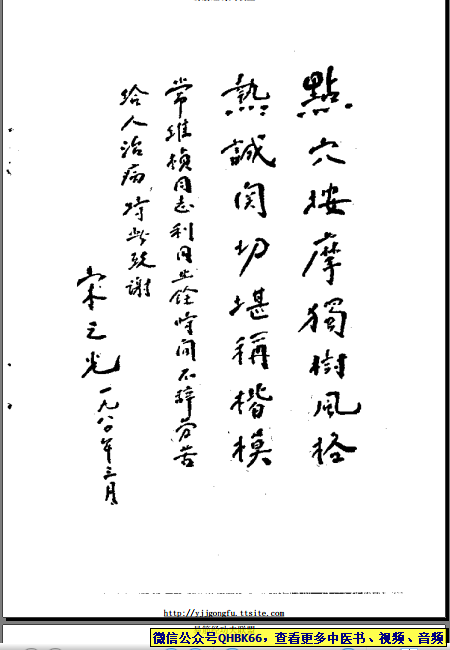 點穴按摩獨樹風格
熱誠関切堪稱楷模
常維楨同志利用业余時间不辞劳苦
给人治病,特此致谢
宋之光
一九八〇年三月
http://yijgongfu.ttsite.com
微信公众号QHBK66，查看更多中医书、视频、音频